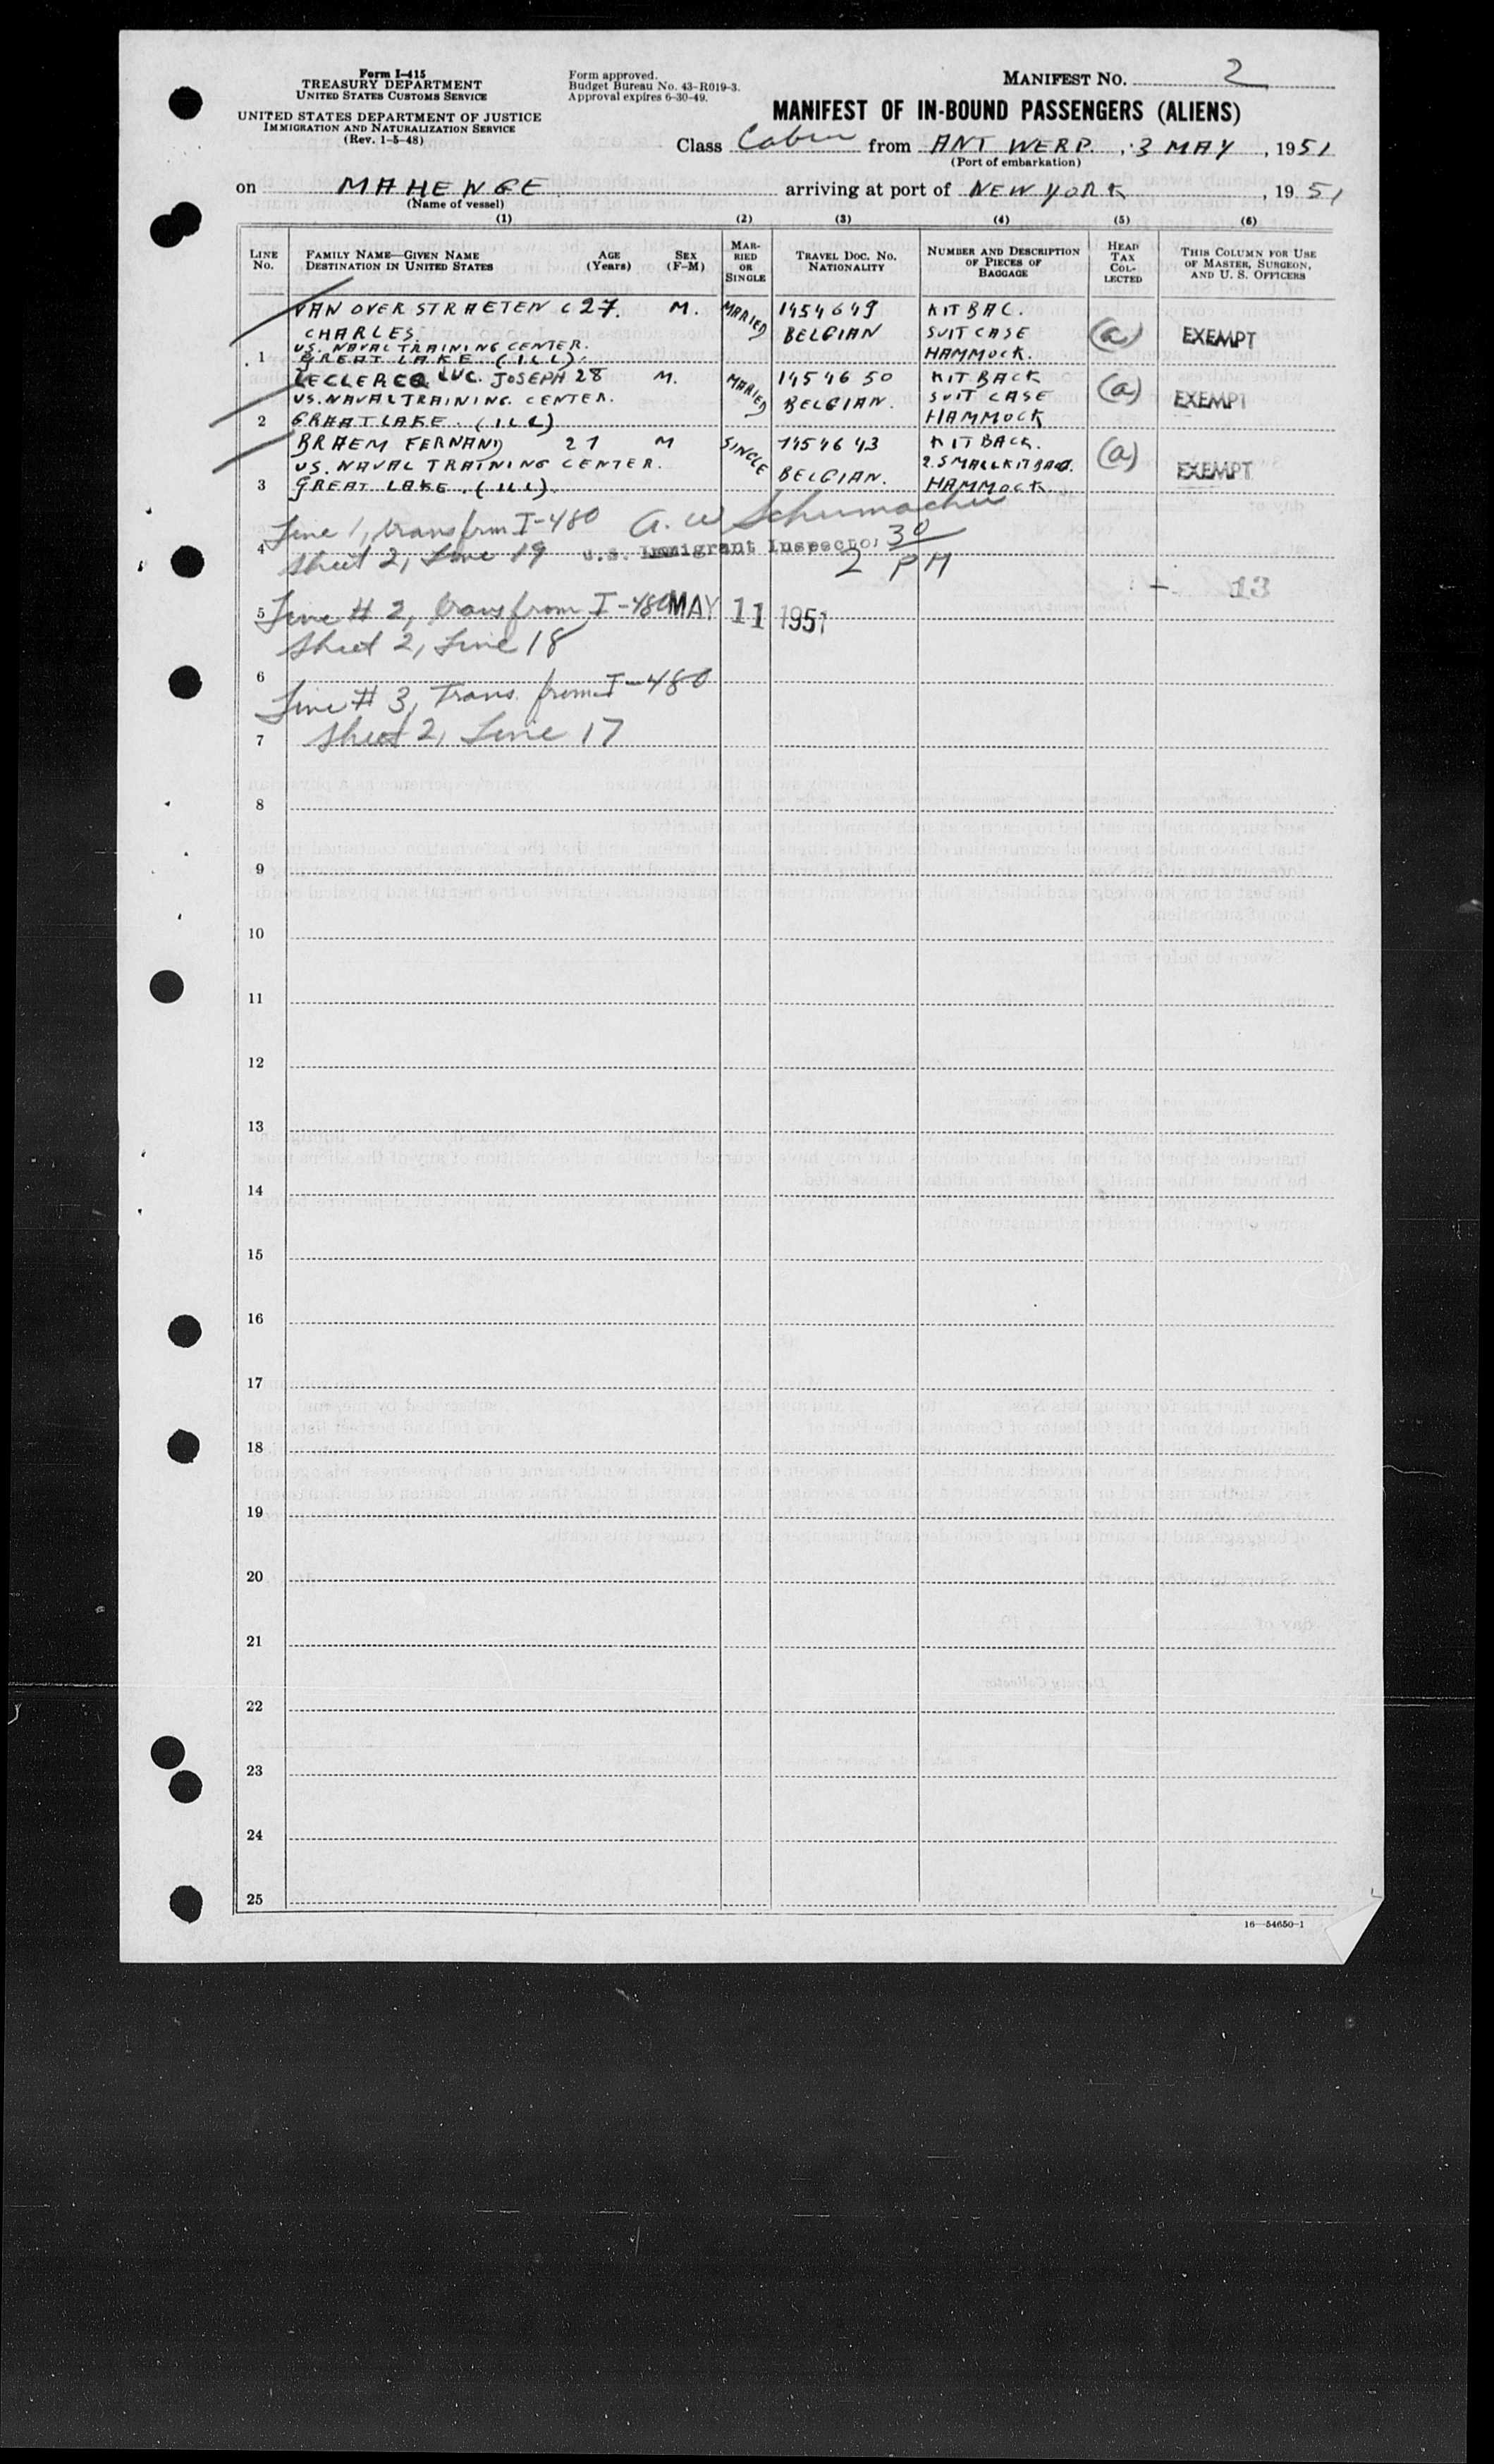 Form I-415
TREASURY DEPARTMENT
UNITED STATES CUSTOMS SERVICE
UNITED STATES DEPARTMENT OF JUSTICE
IMMIGRATION AND NATURALIZATION SERVICE
(Rev. 1-5-48)
Form approved.
Budget Bureau No. 43-R019-3.
Approval expires 6-30-49.
MANIFEST NO. 2
MANIFEST OF IN-BOUND PASSENGERS (ALIENS)
Class Cabin from ANTWERP, 3 MAY, 1951
(Port of embarkation)
on MAHENGE arriving at port of NEW YORK, 1951
(Name of vessel)
(1) (2) (3) (4) (5) (6)
LINE No. FAMILY NAME—GIVEN NAME DESTINATION IN UNITED STATES AGE (Years) SEX (F-M) MARRIED OR SINGLE TRAVEL DOC. NO. NATIONALITY NUMBER AND DESCRIPTION OF PIECES OF BAGGAGE HEAD TAX COLLECTED THIS COLUMN FOR USE OF MASTER, SURGEON, AND U. S. OFFICERS
VAN OVER STRAETEN C 27. M. MARIED 1454649 KIT BAC.
CHARLES. BELGIAN SUIT CASE (a) EXEMPT
US. NAVAL TRAINING CENTER.
1 GREAT LAKE (ILL). HAMMOCK.
LECLERCQ LUC. JOSEPH 28 M. MARIED 1454650 KIT BACK
US. NAVAL TRAINING CENTER. BELGIAN. SUIT CASE (a) EXEMPT
2 GREAT LAKE. (ILL) HAMMOCK
BRAEM FERNAND 21 M SINGLE 1454643 KIT BACK.
US. NAVAL TRAINING CENTER. BELGIAN. 2. SMALL KIT BAG. (a) EXEMPT
3 GREAT LAKE. (ILL). HAMMOCK
Line 1, trans from I-480 A. W Schumacher
4 Sheet 2, Line 19 U.S. Immigrant Inspector 2 30 PM
- 13
5 Line # 2, trans from I-480 MAY 11 1951
Sheet 2, Line 18
6
Line # 3, Trans. from I-480
7 Sheet 2, Line 17
8
9
10
11
12
13
14
15
16
17
18
19
20
21
22
23
24
25
16—54650-1